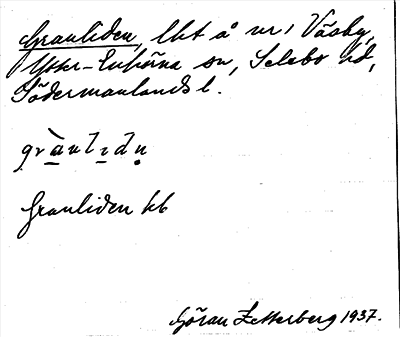 Granliden, lht å nr 1 Väsby,
Ytter-Enhörna sn, Selebo hd,
Södermanlands l.
grànlidn̥
Granliden kb
Göran Zetterberg 1937.